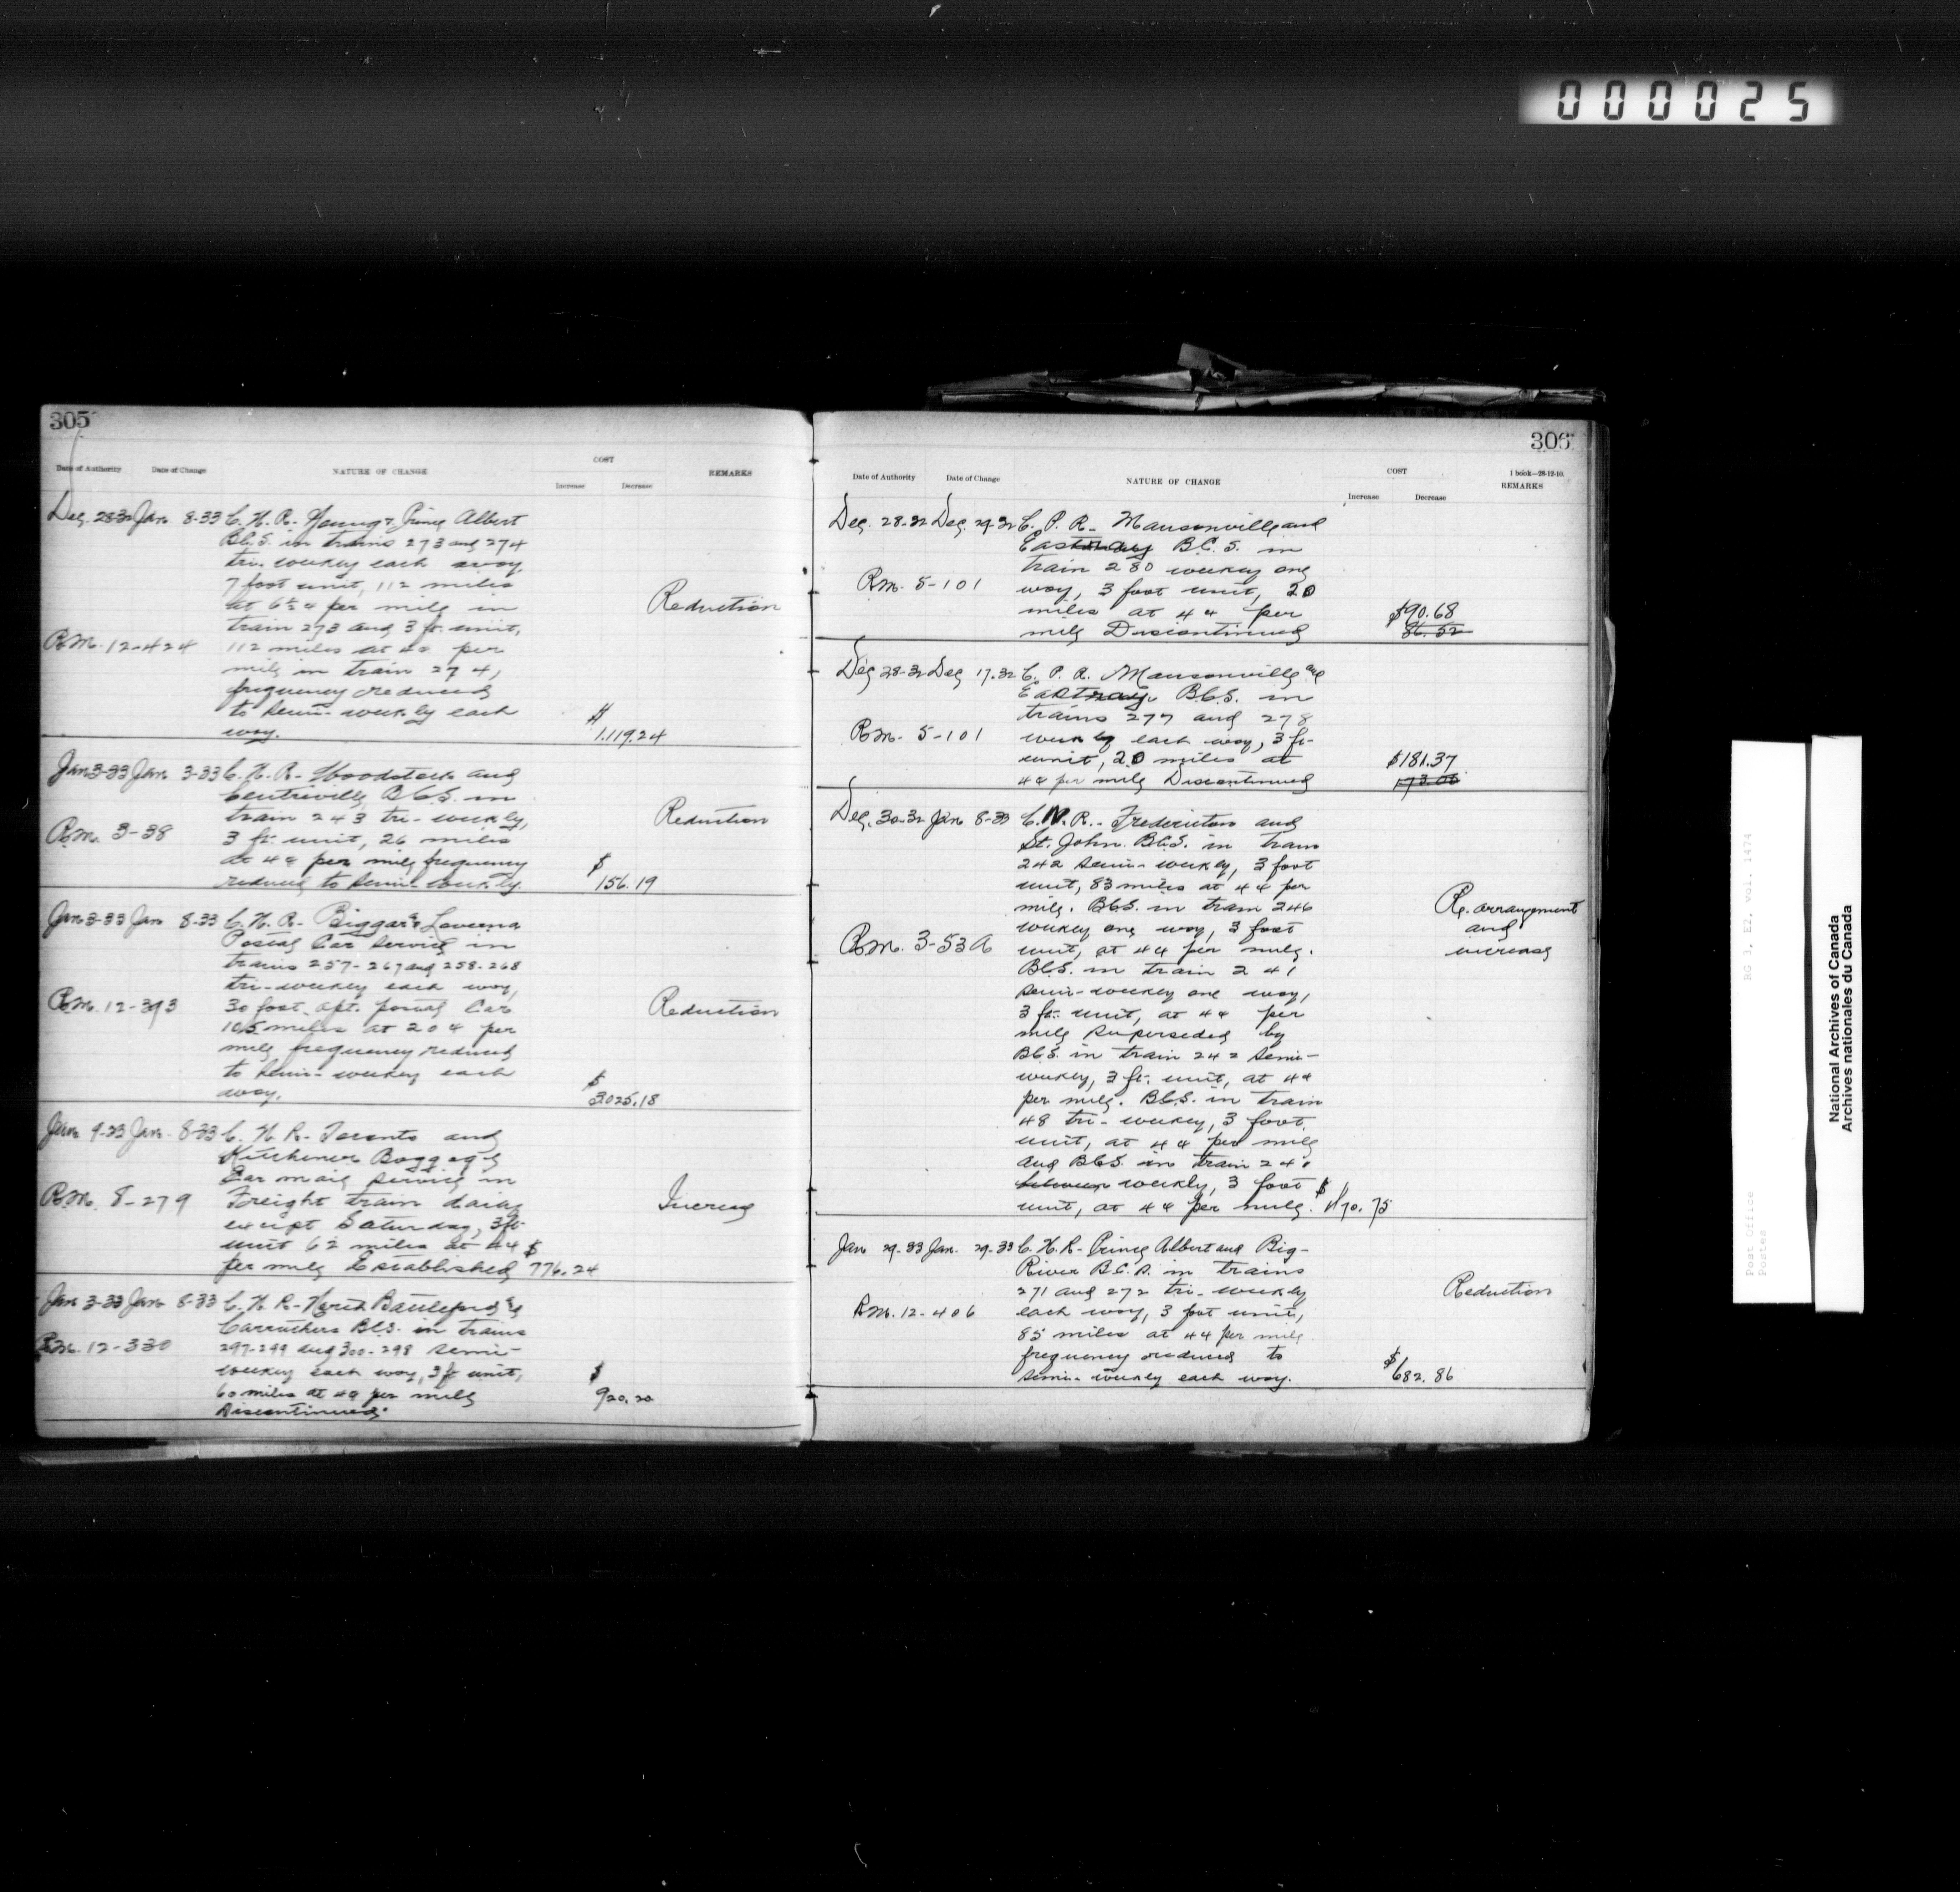 000025
305
Date of Authority Date of Change NATURE OF CHANGE COST Increase Decrease REMARKS
Dec. 28-32 Jan. 8-33 C. N. R. - Young & Prince Albert
B.C.S. in trains 273 and 274
tri-weekly each way,
7 foot unit, 112 miles
at 6½¢ per mile in
Reduction
train 273 and 3 ft. unit,
R.M. 12-424
112 miles at 4¢ per
mile in train 274,
frequency reduced
to semi-weekly each
way.
$
1,119.24
Jan 3-33 Jan. 3-33 C. N. R. - Woodstock and
Centreville B.C.S. in
train 243 tri-weekly,
Reduction
R.M. 3-38
3 ft. unit, 26 miles
at 4¢ per mile frequency
reduced to semi-weekly.
$
156.19
Jan 3-33 Jan 8-33 C. N. R. - Biggar & Loverna
Postal Car Service in
trains 257-267 and 258-268
tri-weekly each way,
R.M. 12-393
30 foot apt. postal car
Reduction
105 miles at 20¢ per
mile, frequency reduced
to semi-weekly each
way.
$
3025.18
Jan. 9-33 Jan. 8-33 C. N. R. - Toronto and
Kitchener Baggage
Car mail service in
R.M. 8-279
Freight train daily
Increase
except Saturday, 3 ft.
unit 62 miles at 4¢
per mile Established
$
776.24
Jan 3-33 Jan. 8-33 C. N. R. - North Battleford &
Carruthers B.C.S. in trains
R.M. 12-330
297-299 and 300-298 semi-
weekly each way, 3 ft unit,
60 miles at 4¢ per mile
Discontinued.
$
920.20
306
1 book—28-12-10.
Date of Authority Date of Change NATURE OF CHANGE COST Increase Decrease REMARKS
Dec. 28-32 Dec. 29-32 C. P. R. - Mansonville and
Eastray B.C.S. in
train 280 weekly one
R.M. 5-101
way, 3 foot unit, 20
miles at 4¢ per
mile Discontinued
$90.68
86.52
Dec 28-32 Dec 17-32 C. P. R. Mansonville and
Eastray B.C.S. in
trains 277 and 278
R.M. 5-101
weekly each way, 3 ft-
unit, 20 miles at
4¢ per mile Discontinued
$181.37
Dec. 30-32 Jan. 8-33 C. N. R. - Fredericton and
St. John B.C.S. in train
242 semi-weekly, 3 foot
unit, 83 miles at 4¢ per
mile. B.C.S. in train 246
Re-arrangement
and
increase
weekly one way, 3 foot
R.M. 3-53A
unit, at 4¢ per mile.
B.C.S. in train 241
semi-weekly one way,
3 ft. unit, at 4¢ per
mile superseded by
B.C.S. in train 242 semi-
weekly, 3 ft. unit, at 4¢
per mile. B.C.S. in train
48 tri-weekly, 3 foot
unit, at 4¢ per mile
and B.C.S. in train 241
weekly, 3 foot
unit, at 4¢ per mile.
Jan 29-33 Jan. 29-33 C. N. R. - Prince Albert and Big-
River B.C.S. in trains
271 and 272 tri-weekly
Reduction
R.M. 12-406
each way, 3 foot unit,
85 miles at 4¢ per mile
frequency reduced to
semi-weekly each way.
$
682.86
Post Office RG 3, E2, vol. 1474
Postes
National Archives of Canada
Archives nationales du Canada